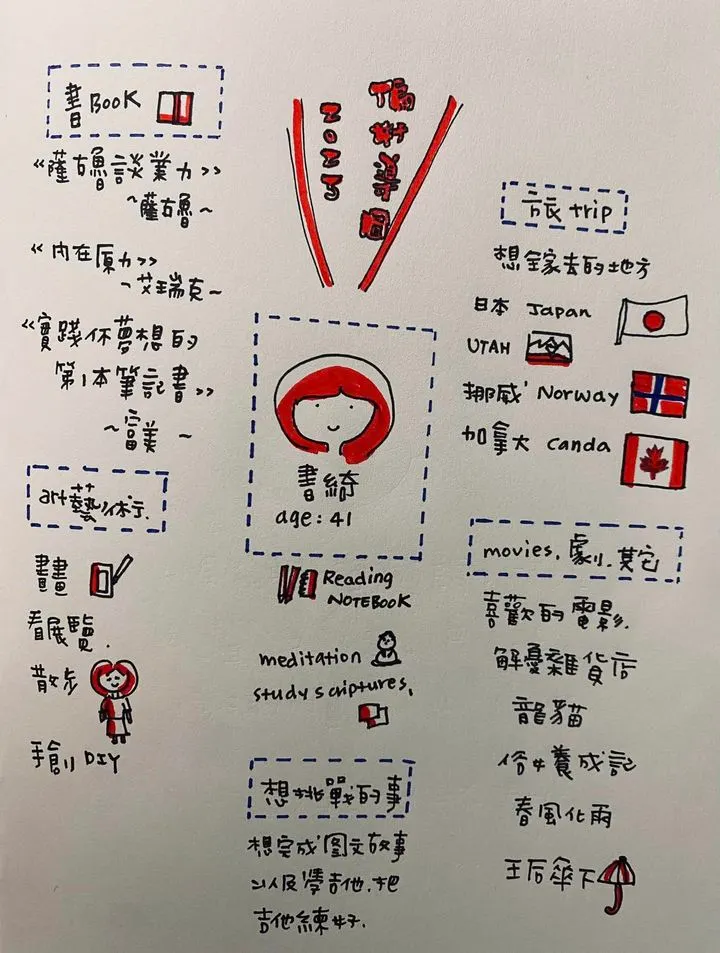 偏好導圖
2025
書 BOOK
《薩古魯談業力》
~薩古魯~
《內在原力》
~艾瑞克~
《實踐你夢想的
第1本筆記書》
~富美~
art藝術行.
畫畫
看展覽.
散步
手創 DIY
書綺
age: 41
Reading
NOTEBOOK
meditation
study scriptures.
想挑戰的事
想完成圖文故事
以及學吉他.把
吉他練好.
旅 trip
想全家去的地方
日本 Japan
UTAH
挪威 Norway
加拿大 canda
movies. 劇.其它
喜歡的電影.
解憂雜貨店
龍貓
俗女養成記
春風化雨
王后傘下